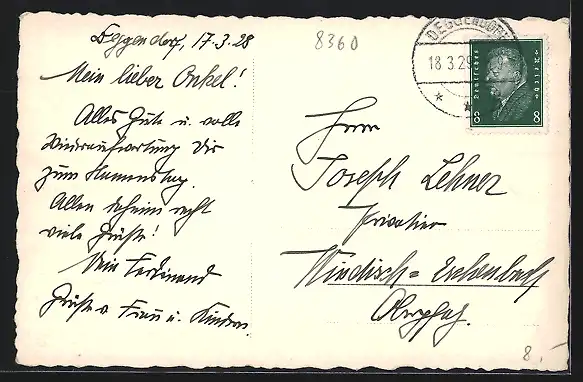 Deggendorf, 17.3.28
8360
Mein lieber Onkel!
Alles Gute u. volle
Dir
zum Namenstag.
Allen daheim recht
viele Grüße!
Dein Ferdinand
Grüße v. Frau u. Kindern.
DEGGENDORF
18.3.29
Deutsches Reich
8 8
Herrn
Joseph Lehner
Privatier
Windisch=Eschenbach
Oberpfalz.
8,-